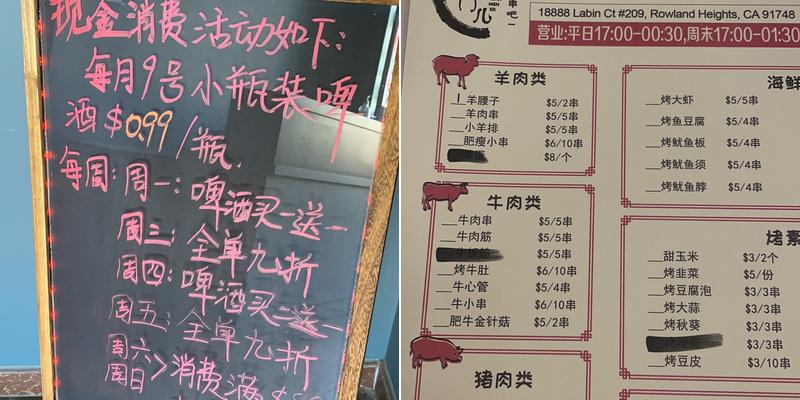 现金消费活动如下:
每月9号小瓶装啤
酒$0.99/瓶.
每周:周一:啤酒买一送一
周三:全单九折
周四:啤酒买二送一
周五:全单九折
周六>消费满
周日
串吧
18888 Labin Ct #209, Rowland Heights, CA 91748
营业:平日17:00-00:30,周末17:00-01:30
羊肉类
羊腰子 $5/2串
羊肉串 $5/5串
小羊排 $5/5串
肥瘦小串 $6/10串
$8/个
牛肉类
牛肉串 $5/5串
牛肉筋 $5/5串
$5/5串
烤牛肚 $6/10串
牛心管 $5/4串
牛小串 $6/10串
肥牛金针菇 $5/2串
猪肉类
海鲜
烤大虾 $5/5串
烤鱼豆腐 $5/4串
烤鱿鱼板 $5/4串
烤鱿鱼须 $5/4串
烤鱿鱼脖 $5/4串
烤素
甜玉米 $3/2个
烤韭菜 $5/份
烤豆腐泡 $3/3串
烤大蒜 $3/3串
烤秋葵 $3/3串
$3/3串
烤豆皮 $3/10串